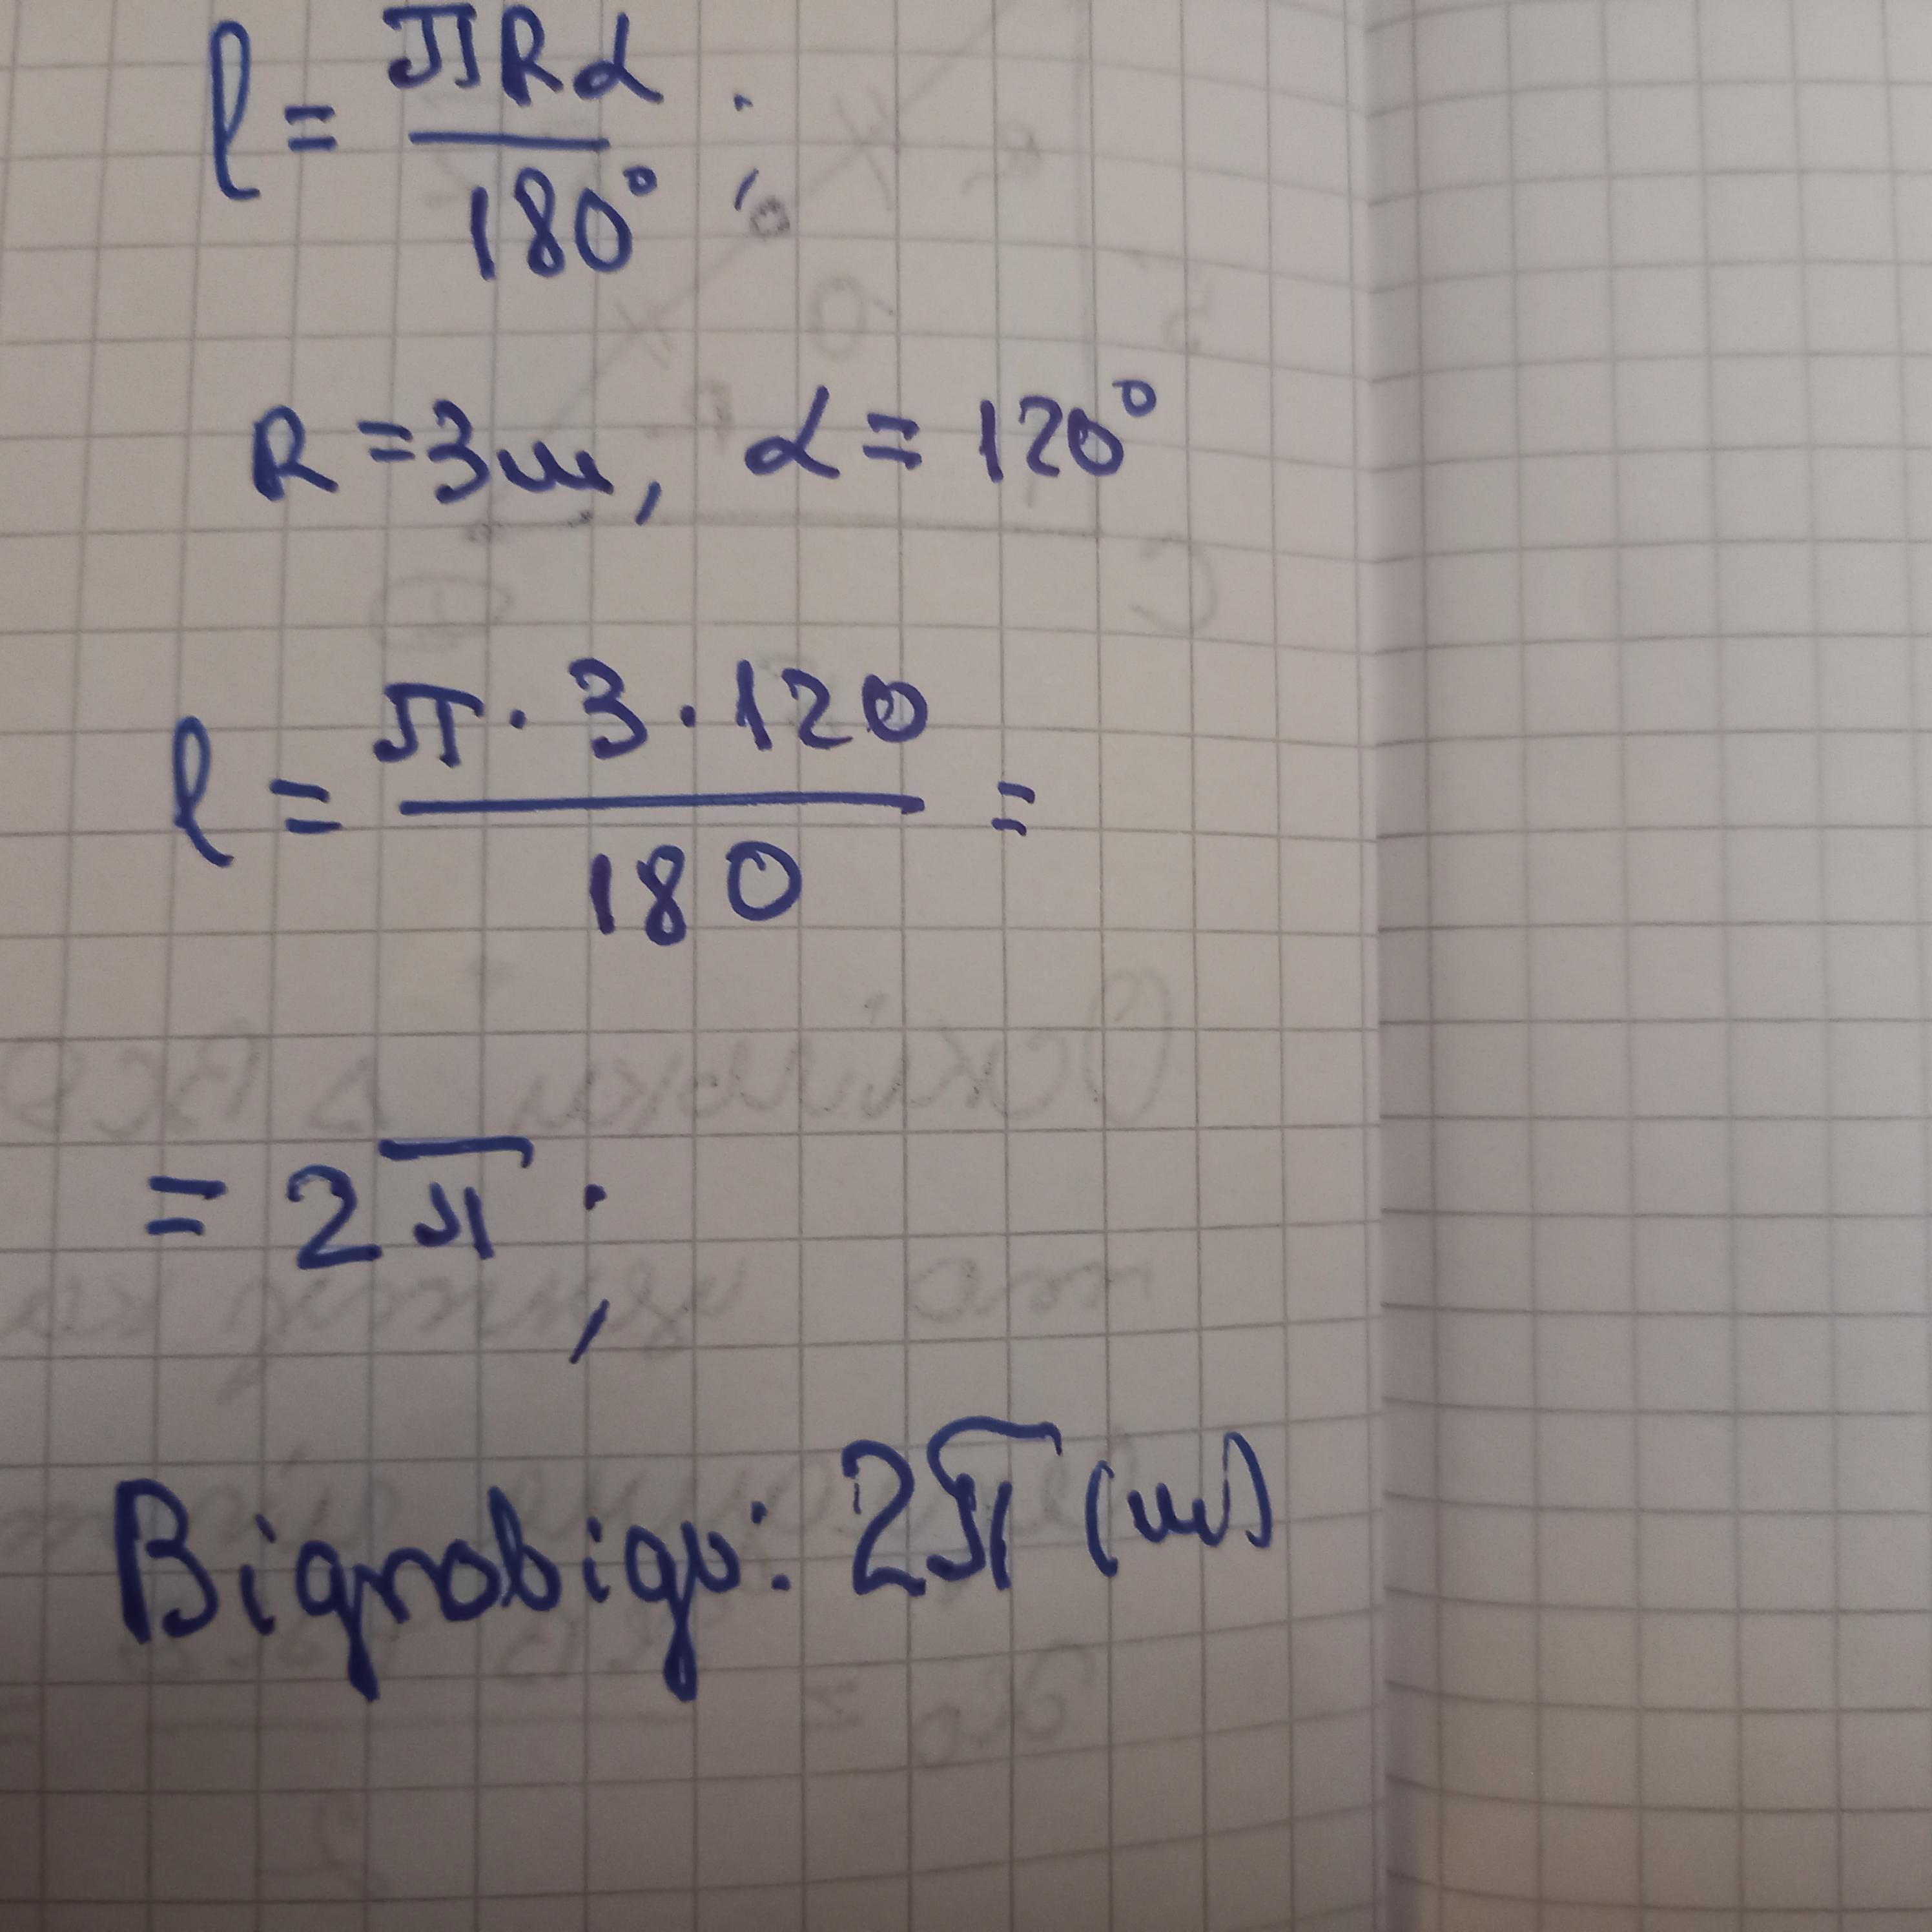 l = πRα / 180° ;
R = 3м, α = 120°
l = π · 3 · 120 / 180 =
= 2π ;
Відповідь: 2π (м)